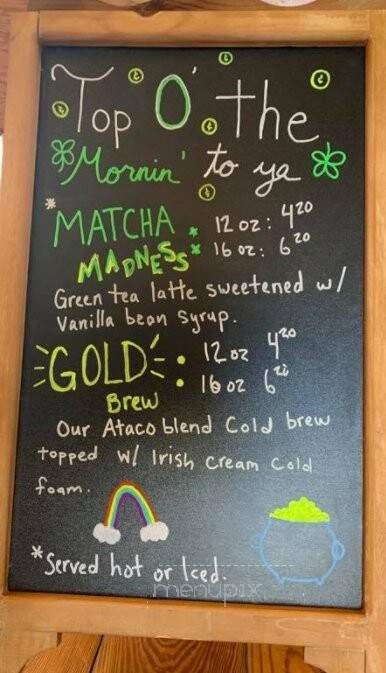 Top O' the
Mornin' to ya
*MATCHA : 12 oz : 4.20
MADNESS * 16 oz : 6.20
Green tea latte sweetened w/
Vanilla bean syrup.
GOLD : 12 oz 4.20
Brew 16 oz
Our Ataco blend Cold brew
topped w/ Irish Cream Cold
foam.
*Served hot or Iced.
menupix